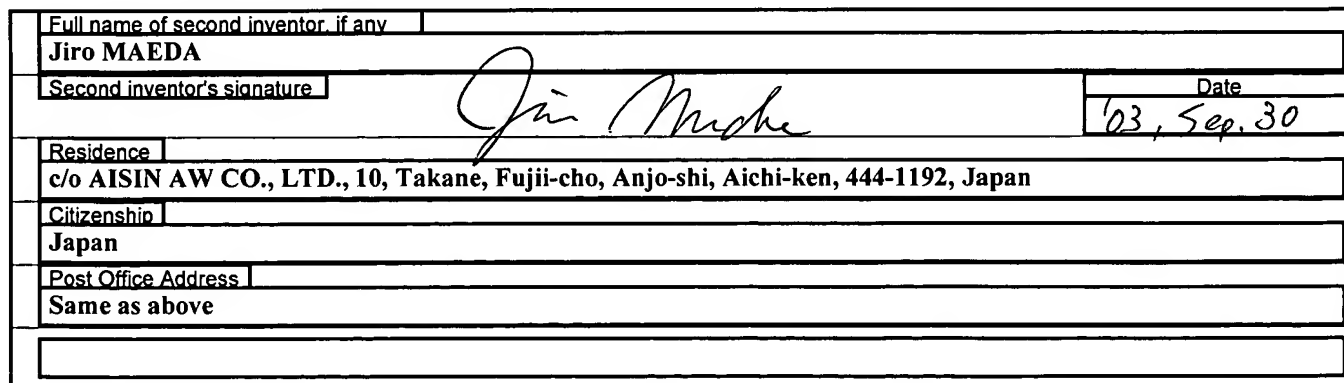 Full name of second inventor, if any
Jiro MAEDA
Second inventor's signature
Date
'03, Sep. 30
Residence
c/o AISIN AW CO., LTD., 10, Takane, Fujii-cho, Anjo-shi, Aichi-ken, 444-1192, Japan
Citizenship
Japan
Post Office Address
Same as above